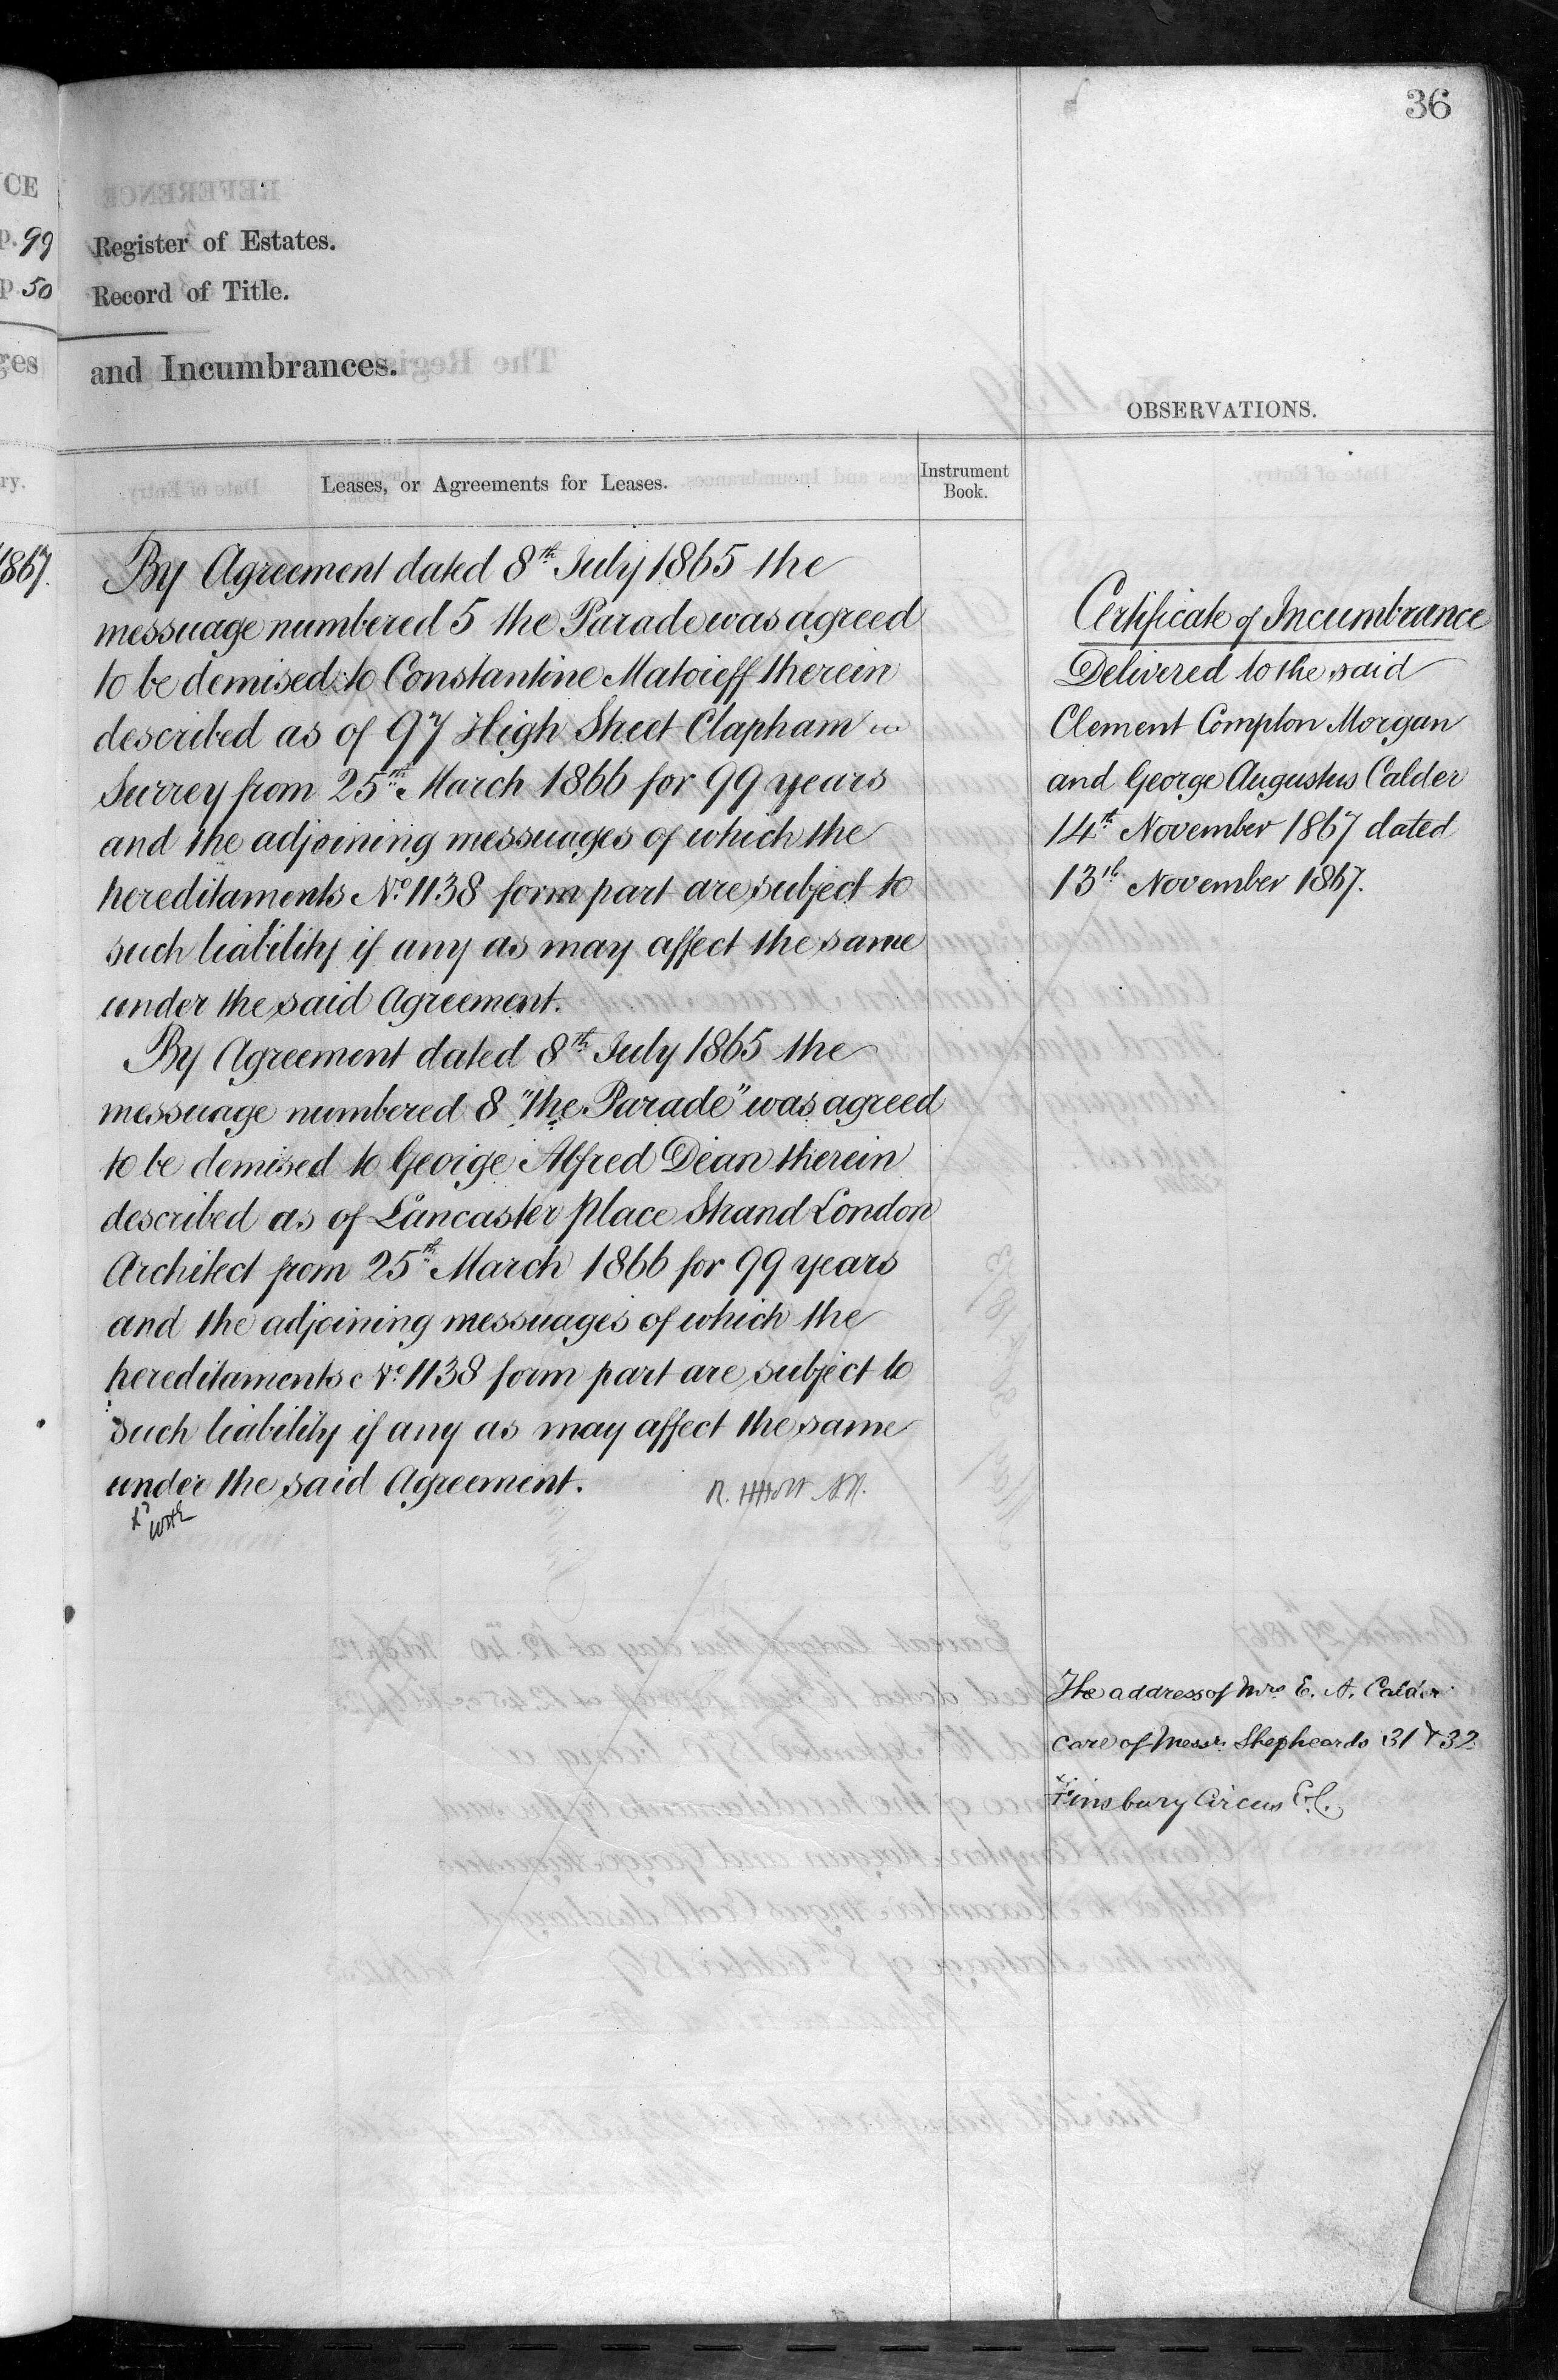 36
CE
p. 99
Register of Estates.
p. 50
Record of Title.
ges
and Incumbrances.
OBSERVATIONS.
ry.
Leases, or Agreements for Leases.
Instrument
Book.
1867.
By Agreement dated 8th July 1865 the
messuage numbered 5 the Parade was agreed
to be demised to Constantine Matoieff therein
described as of 97 High Street Clapham in
Surrey from 25th March 1866 for 99 years
and the adjoining messuages of which the
hereditaments No. 1138 form part are subject to
such liability if any as may affect the same
under the said Agreement.
By Agreement dated 8th July 1865 the
messuage numbered 8 "the Parade" was agreed
to be demised to George Alfred Dean therein
described as of Lancaster place Strand London
Architect from 25th March 1866 for 99 years
and the adjoining messuages of which the
hereditaments No. 1138 form part are subject to
such liability if any as may affect the same
under the said Agreement.
Certificate of Incumbrance
Delivered to the said
Clement Compton Morgan
and George Augustus Calder
14th November 1867 dated
13th November 1867.
The address of Mrs E. A. Calder
care of Messrs. Shepheards 31 & 32
Finsbury Circus E.C.